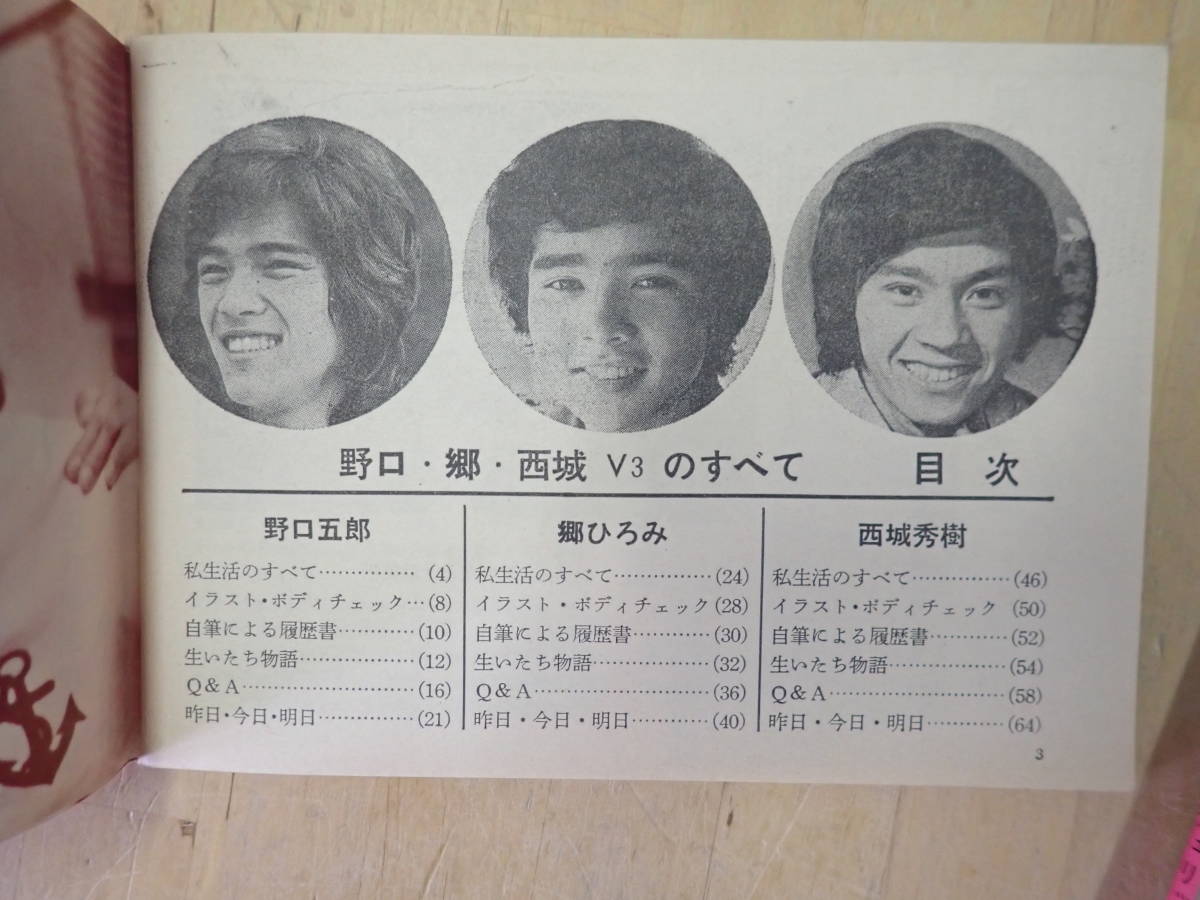 野口・郷・西城 V3 のすべて 目次
野口五郎
私生活のすべて……………(4)
イラスト・ボディチェック…(8)
自筆による履歴書…………(10)
生いたち物語………………(12)
Q&A………………………(16)
昨日・今日・明日……………(21)
郷ひろみ
私生活のすべて……………(24)
イラスト・ボディチェック(28)
自筆による履歴書…………(30)
生いたち物語………………(32)
Q&A………………………(36)
昨日・今日・明日…………(40)
西城秀樹
私生活のすべて……………(46)
イラスト・ボディチェック (50)
自筆による履歴書…………(52)
生いたち物語………………(54)
Q&A………………………(58)
昨日・今日・明日…………(64)
3